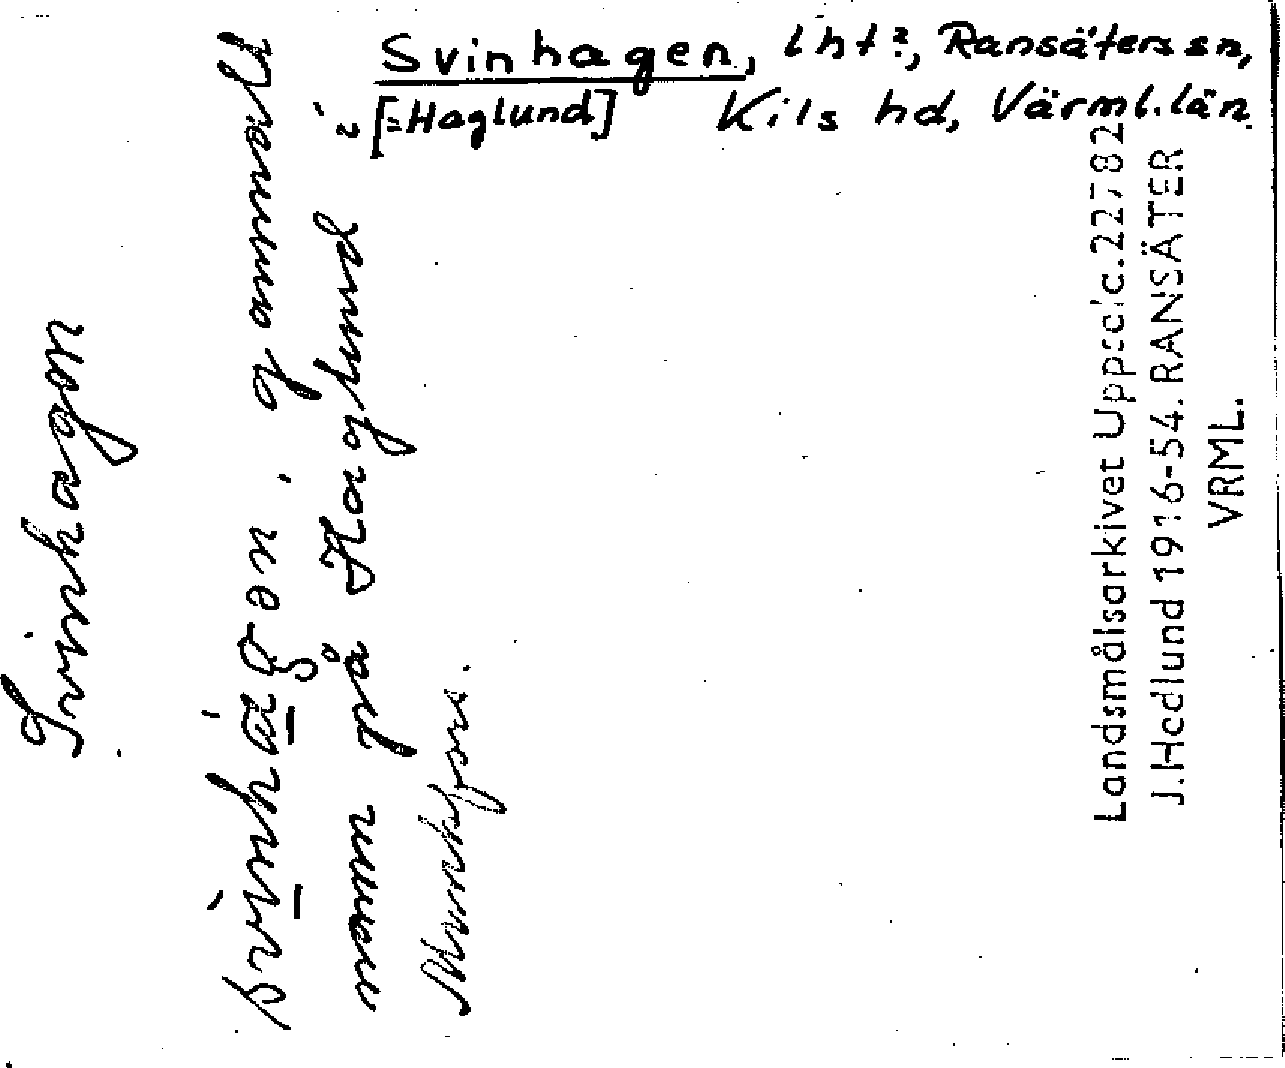 Svinhagen, lht?, Ransäters sn,
[=Haglund] Kils hd, Värml. län
Svinhagen
namn på Haglund
Munkfors.
Landsmålsarkivet Uppsala. 22782
J. Hedlund 1916-54. RANSÄTER
VRML.